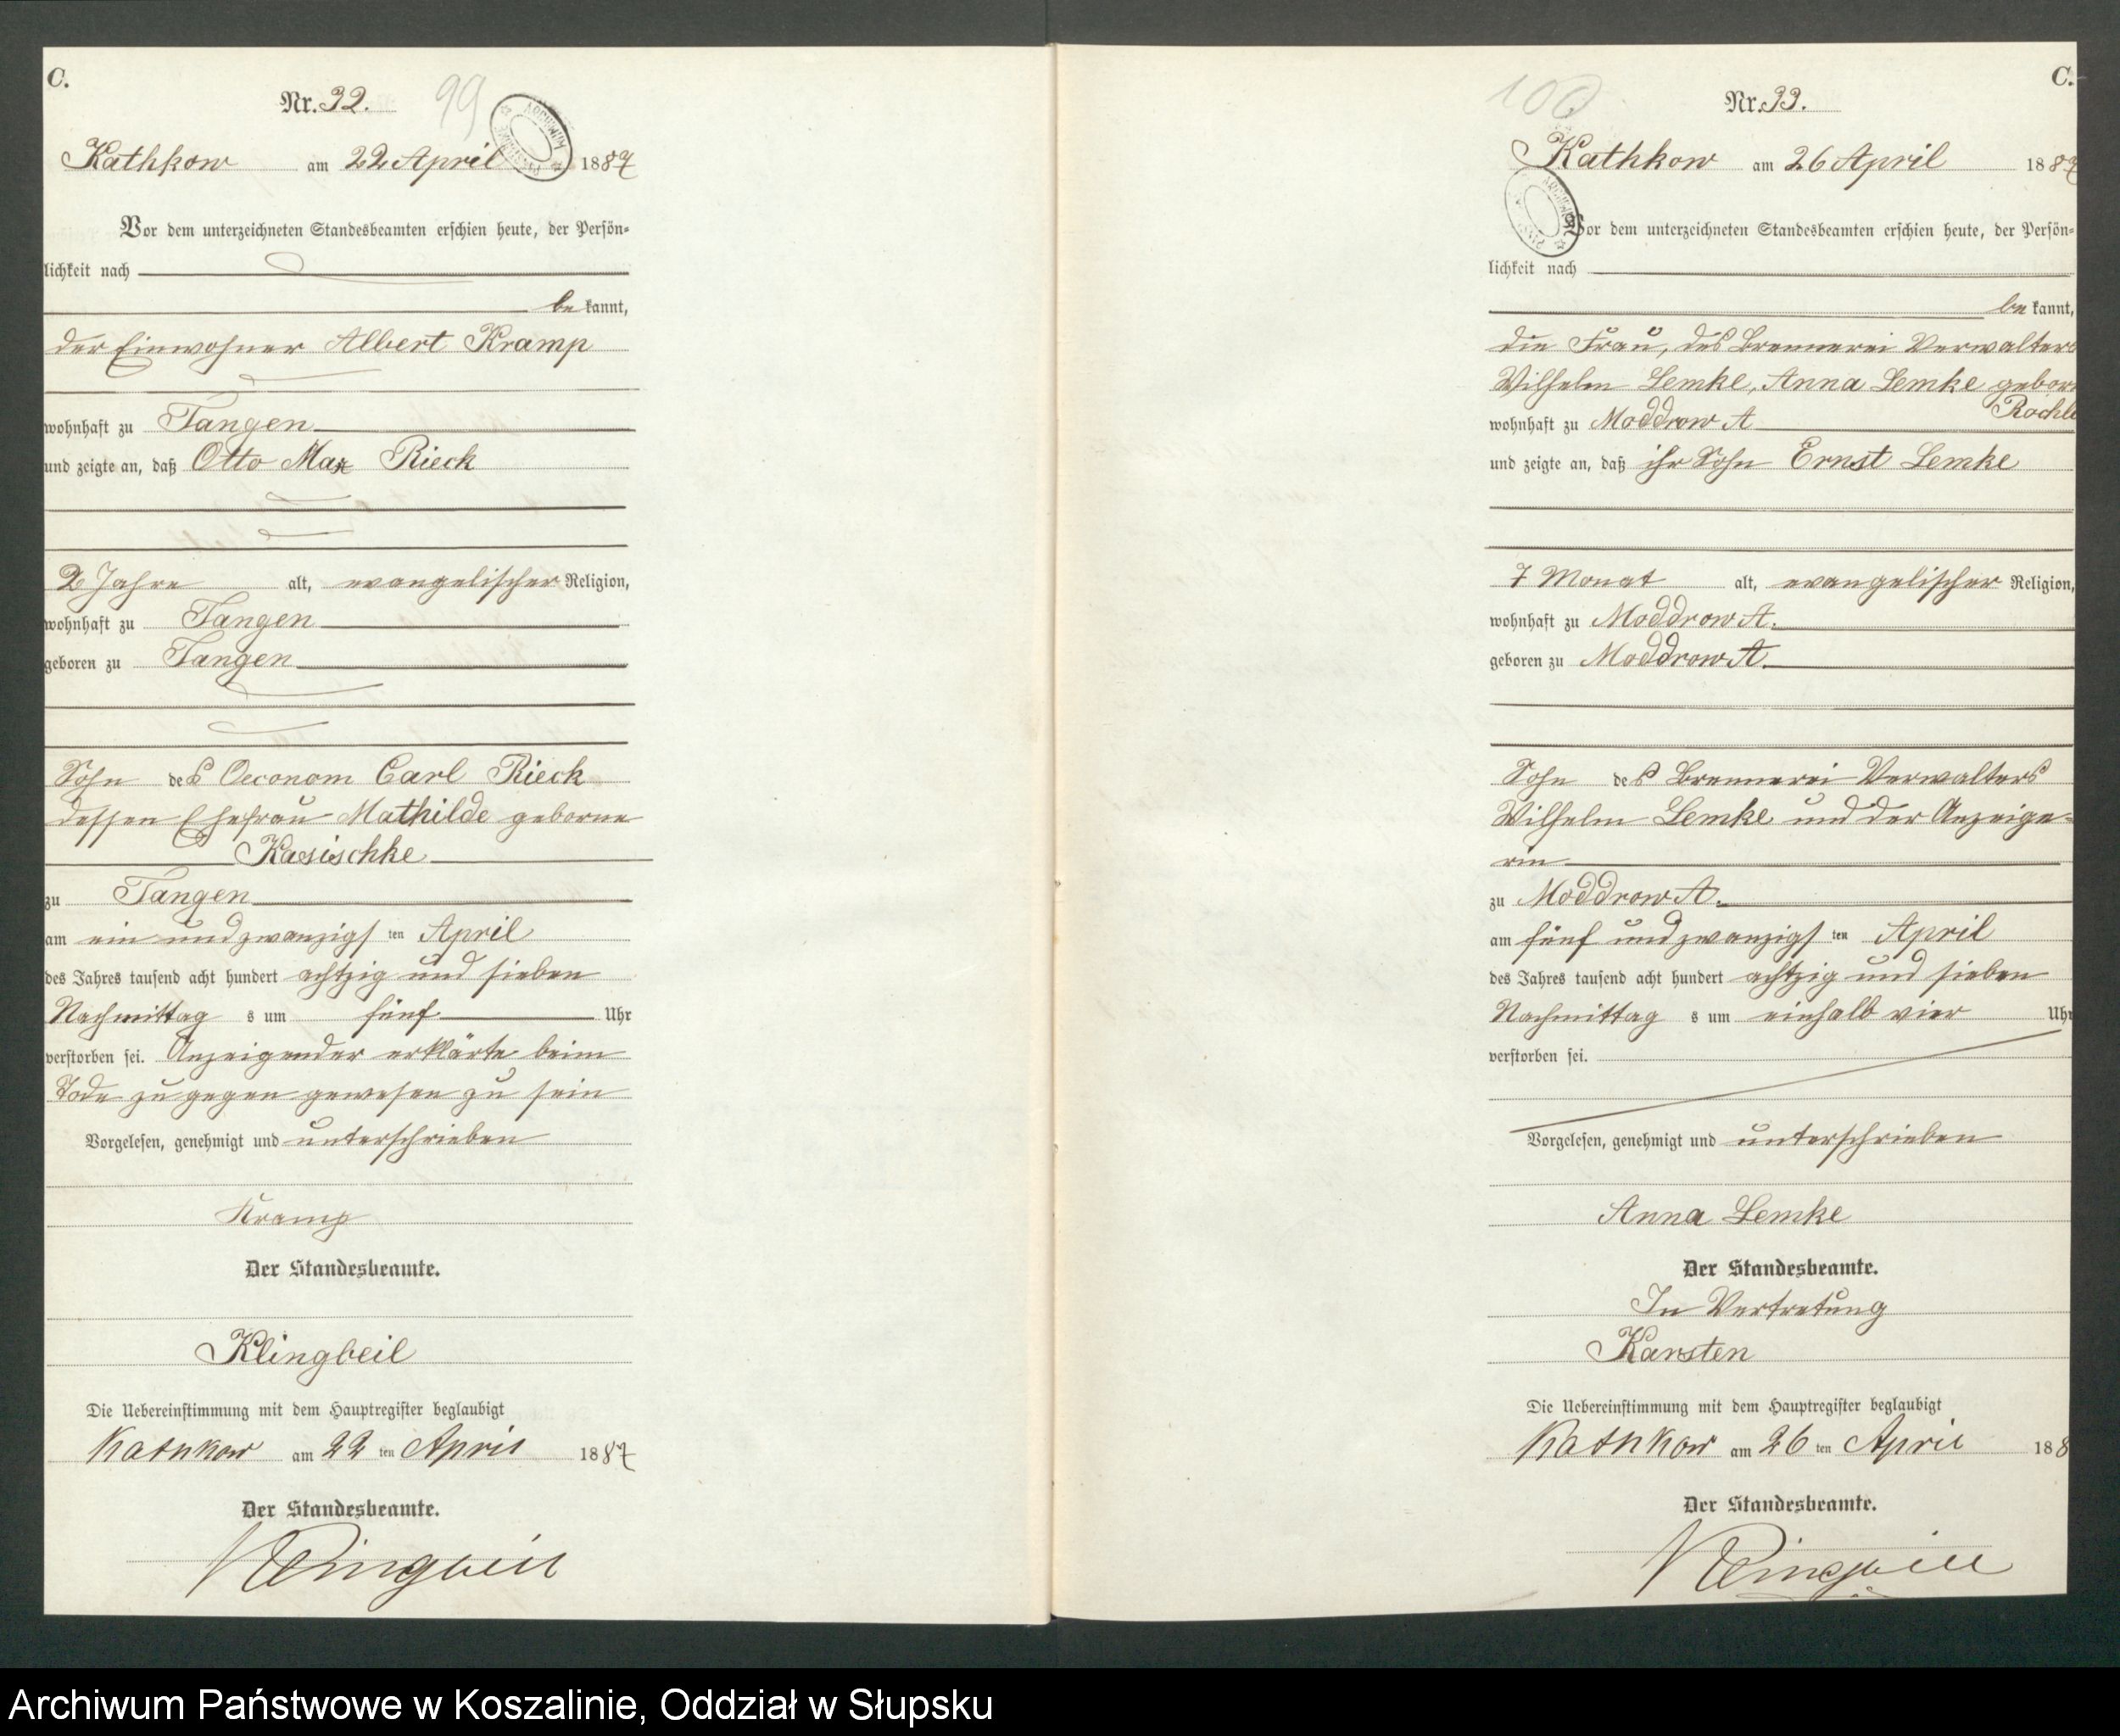 C.
Nr. 32.
99
Kathkow am 22 April 1887
Vor dem unterzeichneten Standesbeamten erschien heute, der Persön=
lichkeit nach
be kannt,
der Einwohner Albert Kramp
wohnhaft zu Tangen
und zeigte an, daß Otto Max Rieck
2 Jahre alt, evangelischer Religion,
wohnhaft zu Tangen
geboren zu Tangen
Sohn des Oeconom Carl Rieck
dessen Ehefrau Mathilde geborne
Kasischke
zu Tangen
am ein und zwanzigsten April
des Jahres tausend acht hundert achtzig und sieben
Nachmittag s um fünf Uhr
verstorben sei. Anzeigender erklärte beim
Tode zu gegen gewesen zu sein
Vorgelesen, genehmigt und unterschrieben
Kramp
Der Standesbeamte.
Klingbeil
Die Uebereinstimmung mit dem Hauptregister beglaubigt
Kathkow am 22 ten April 1887
Der Standesbeamte.
Klingbeil
C.
100
Nr. 33.
Kathkow am 26 April 1887
Vor dem unterzeichneten Standesbeamten erschien heute, der Persön=
lichkeit nach
be kannt,
die Frau, des Brennerei Verwalters
Wilhelm Lemke, Anna Lemke gebor
wohnhaft zu Moddrow A
und zeigte an, daß ihr Sohn Ernst Lemke
7 Monat alt, evangelischer Religion,
wohnhaft zu Moddrow A.
geboren zu Moddrow A.
Sohn des Brennerei Verwalters
Wilhelm Lemke und der Anzeige=
rin
zu Moddrow A.
am fünf und zwanzigsten April
des Jahres tausend acht hundert achtzig und sieben
Nachmittag s um einhalb vier Uhr
verstorben sei.
Vorgelesen, genehmigt und unterschrieben
Anna Lemke
Der Standesbeamte.
In Vertretung
Karsten
Die Uebereinstimmung mit dem Hauptregister beglaubigt
Kathkow am 26 ten April 188
Der Standesbeamte.
Klingbeil
Archiwum Państwowe w Koszalinie, Oddział w Słupsku